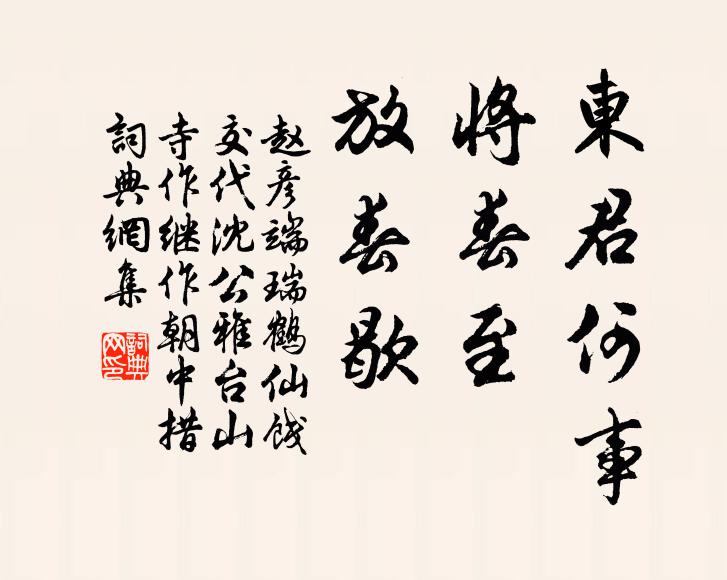 東君何事
將春至
放春歇
赵彦端瑞鶴仙餞
交代沈公雅台山
寺作继作朝中措
詞典網集
詞典网印